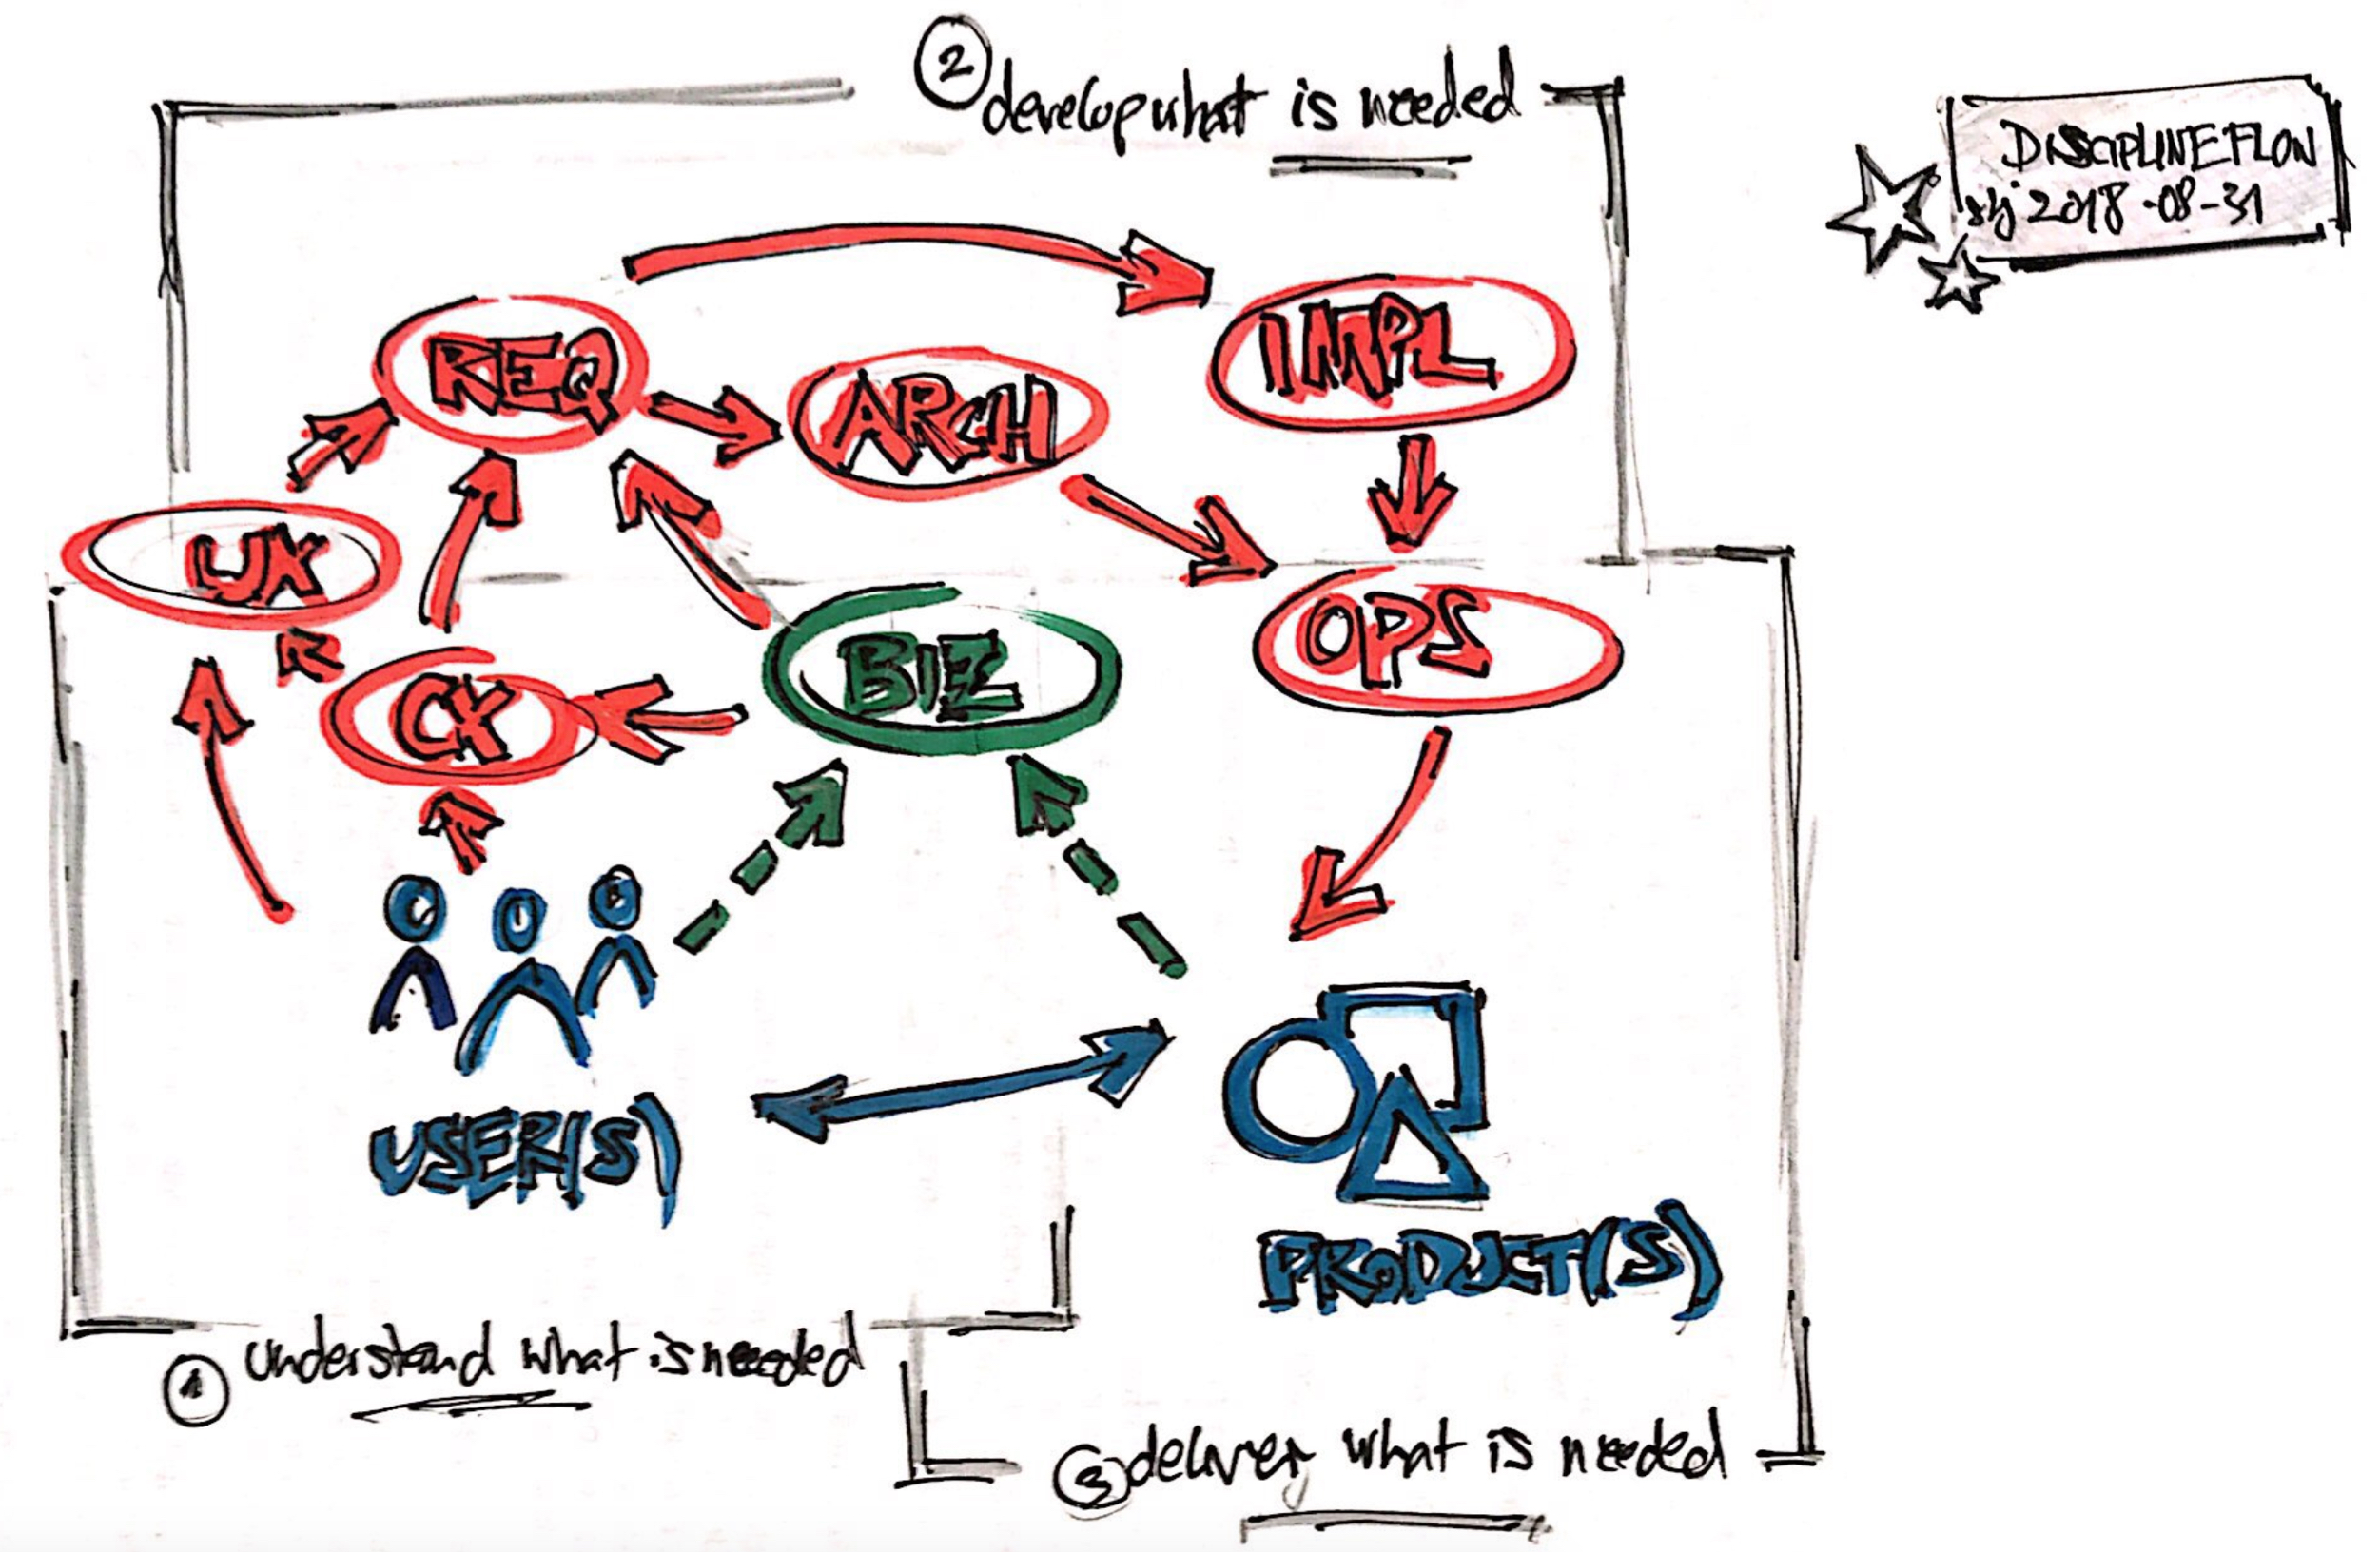 2 develop what is needed
DISCIPLINEFLOW
2018-08-31
REQ
IMPL
ARCH
UX
OPS
BIZ
CX
USER(S)
PRODUCT(S)
1 understand what is needed
3 deliver what is needed